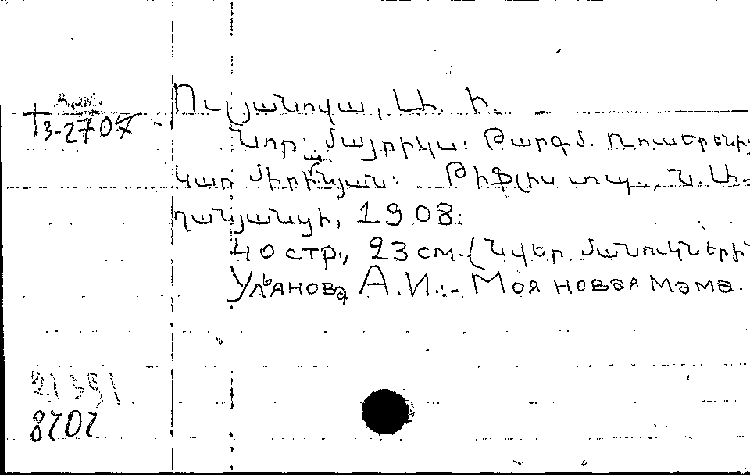 Ուլյանովա, Ա. Ի.
13-2707
Նոր մայրիկս: Թարգմ. Ռուսերենից
Կար Միրինյան: Թիֆլիս տպ. Ն. Ա.
ղանյանցի, 1908:
40 стр., 23 см (Նվեր մանուկների
Ульянова А.И. - Моя новая мама.
21391
8202